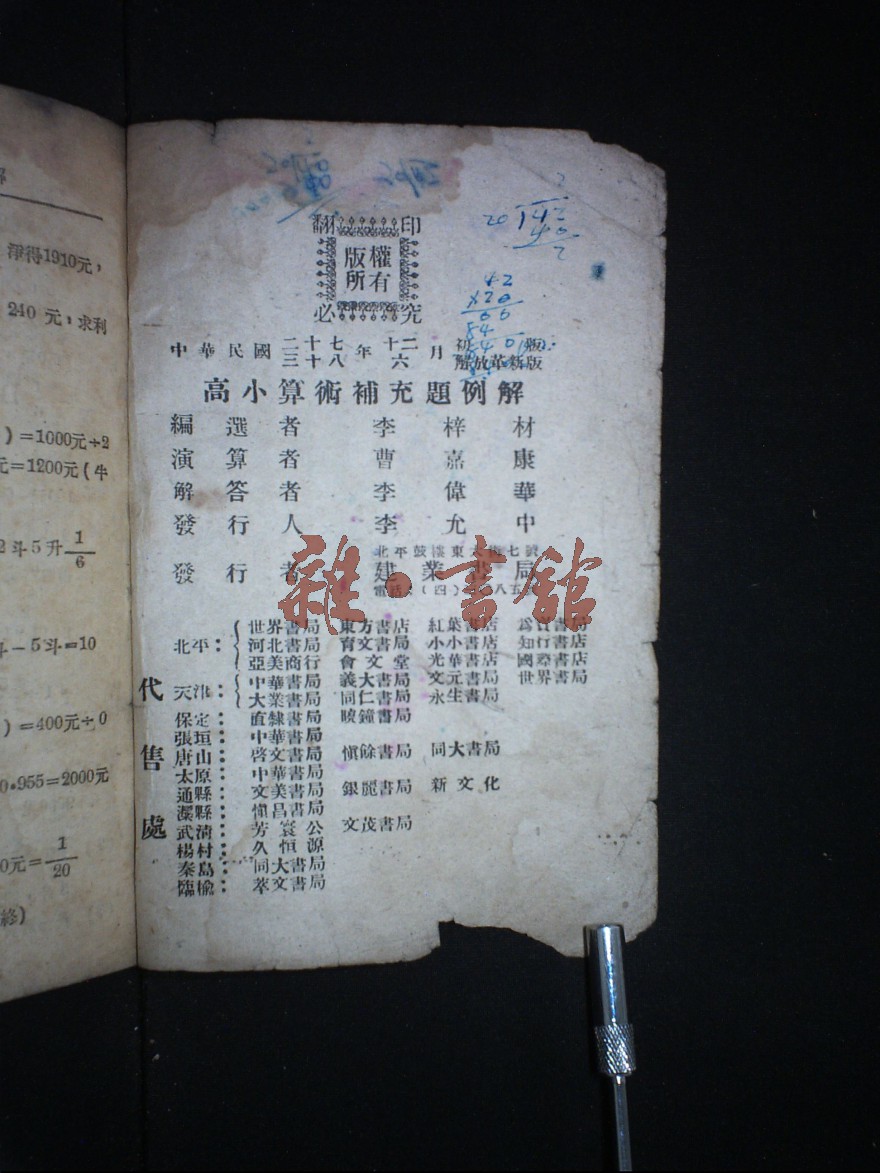 淨得1910元，
240 元，求利
)=1000元÷2
元=1200元(牛
2斗5升1/6
斗-5斗=10
)=400元÷0
0.955=2000元
0元=1/20
終)
翻印
版權
所有
必究
中華民國二十七年十二月初版
三十八 六 解放革新版
高小算術補充題例解
編選者 李梓材
演算者 曹嘉康
解答者 李偉華
發行人 李允中
北平鼓樓東大街七號
發行者 建業書局
電話 (四) 八五
代售處
北平： 世界書局 東方書店 紅葉書店 書局
河北書局 育文書局 小小書店 知行書店
亞美商行 會文堂 光華書店 國際書店
天津： 中華書局 義大書局 文元書局 世界書局
大業書局 同仁書局 永生書局
保定： 直隸書局 曉鐘書局
張垣： 中華書局
唐山： 啓文書局 慎餘書局 同大書局
太原： 中華書局
通縣： 文美書局 銀麗書局 新文化
灤縣： 慎昌書局
武清： 芳寰公 文茂書局
楊村： 久恒源
秦島： 同大書局
臨榆： 萃文書局
20 142
40
2
42
x20
00
84
雜·書舘